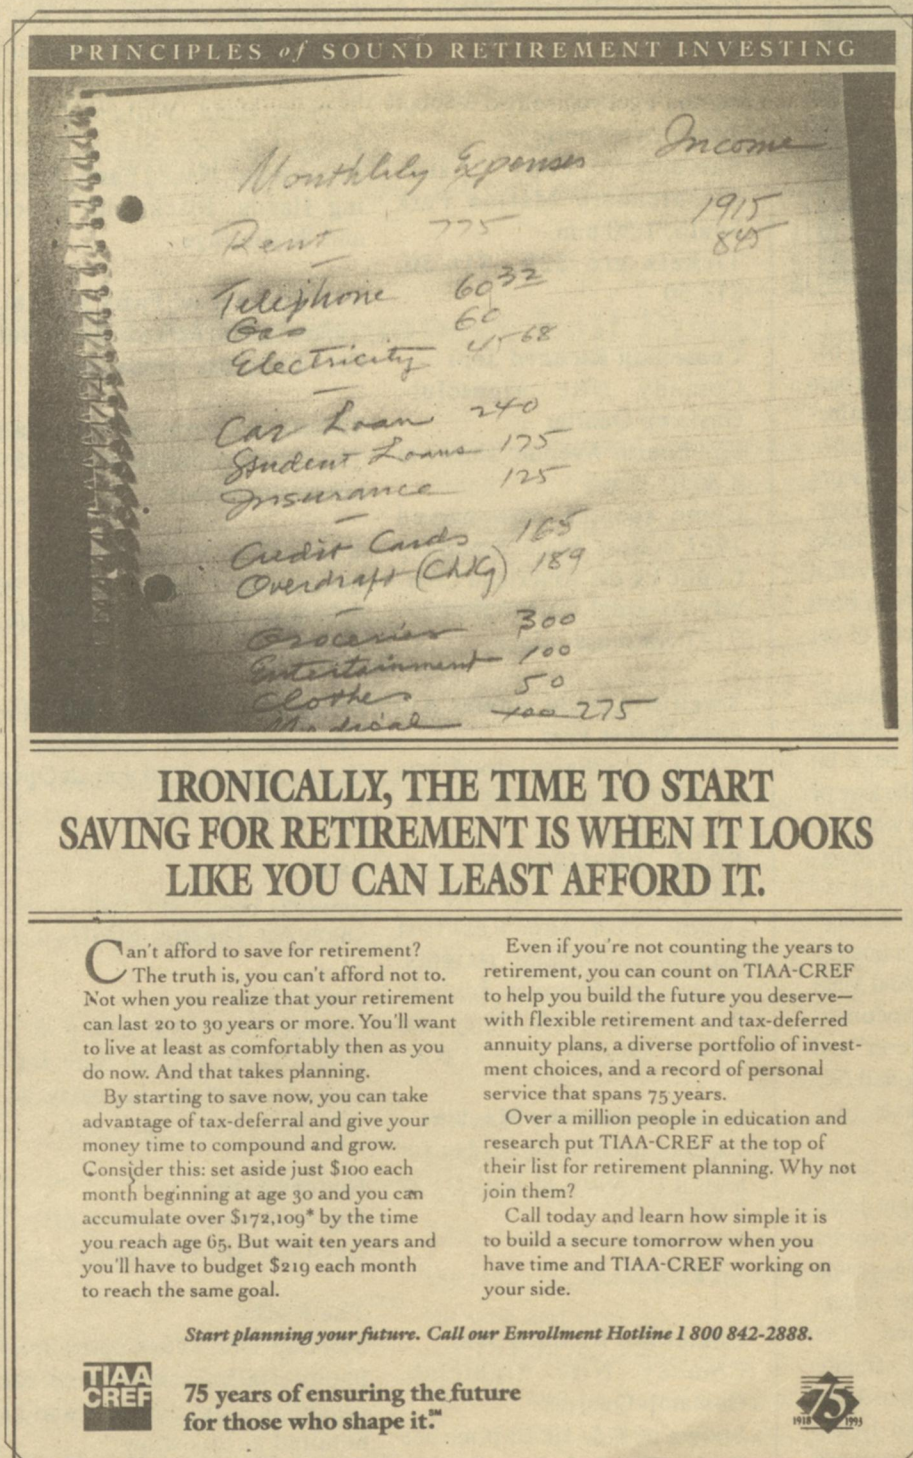 PRINCIPLES of SOUND RETIREMENT INVESTING
Monthlily Expenses Income
Rent 775 1915
845
Telephone 60 32
Gas 60
Electricity 45 68
Car Loan 240
Student Loans 175
Insurance 125
Credit Cards 165
Overdraft (Chkg) 189
Groceries 300
Entertainment 100
Clothes 50
Medical 100 275
IRONICALLY, THE TIME TO START
SAVING FOR RETIREMENT IS WHEN IT LOOKS
LIKE YOU CAN LEAST AFFORD IT.
Can't afford to save for retirement?
The truth is, you can't afford not to.
Not when you realize that your retirement
can last 20 to 30 years or more. You'll want
to live at least as comfortably then as you
do now. And that takes planning.
By starting to save now, you can take
advantage of tax-deferral and give your
money time to compound and grow.
Consider this: set aside just $100 each
month beginning at age 30 and you can
accumulate over $172,109* by the time
you reach age 65. But wait ten years and
you'll have to budget $219 each month
to reach the same goal.
Even if you're not counting the years to
retirement, you can count on TIAA-CREF
to help you build the future you deserve—
with flexible retirement and tax-deferred
annuity plans, a diverse portfolio of invest-
ment choices, and a record of personal
service that spans 75 years.
Over a million people in education and
research put TIAA-CREF at the top of
their list for retirement planning. Why not
join them?
Call today and learn how simple it is
to build a secure tomorrow when you
have time and TIAA-CREF working on
your side.
Start planning your future. Call our Enrollment Hotline 1 800 842-2888.
TIAA
CREF
75 years of ensuring the future
for those who shape it.℠
75
1918 1993